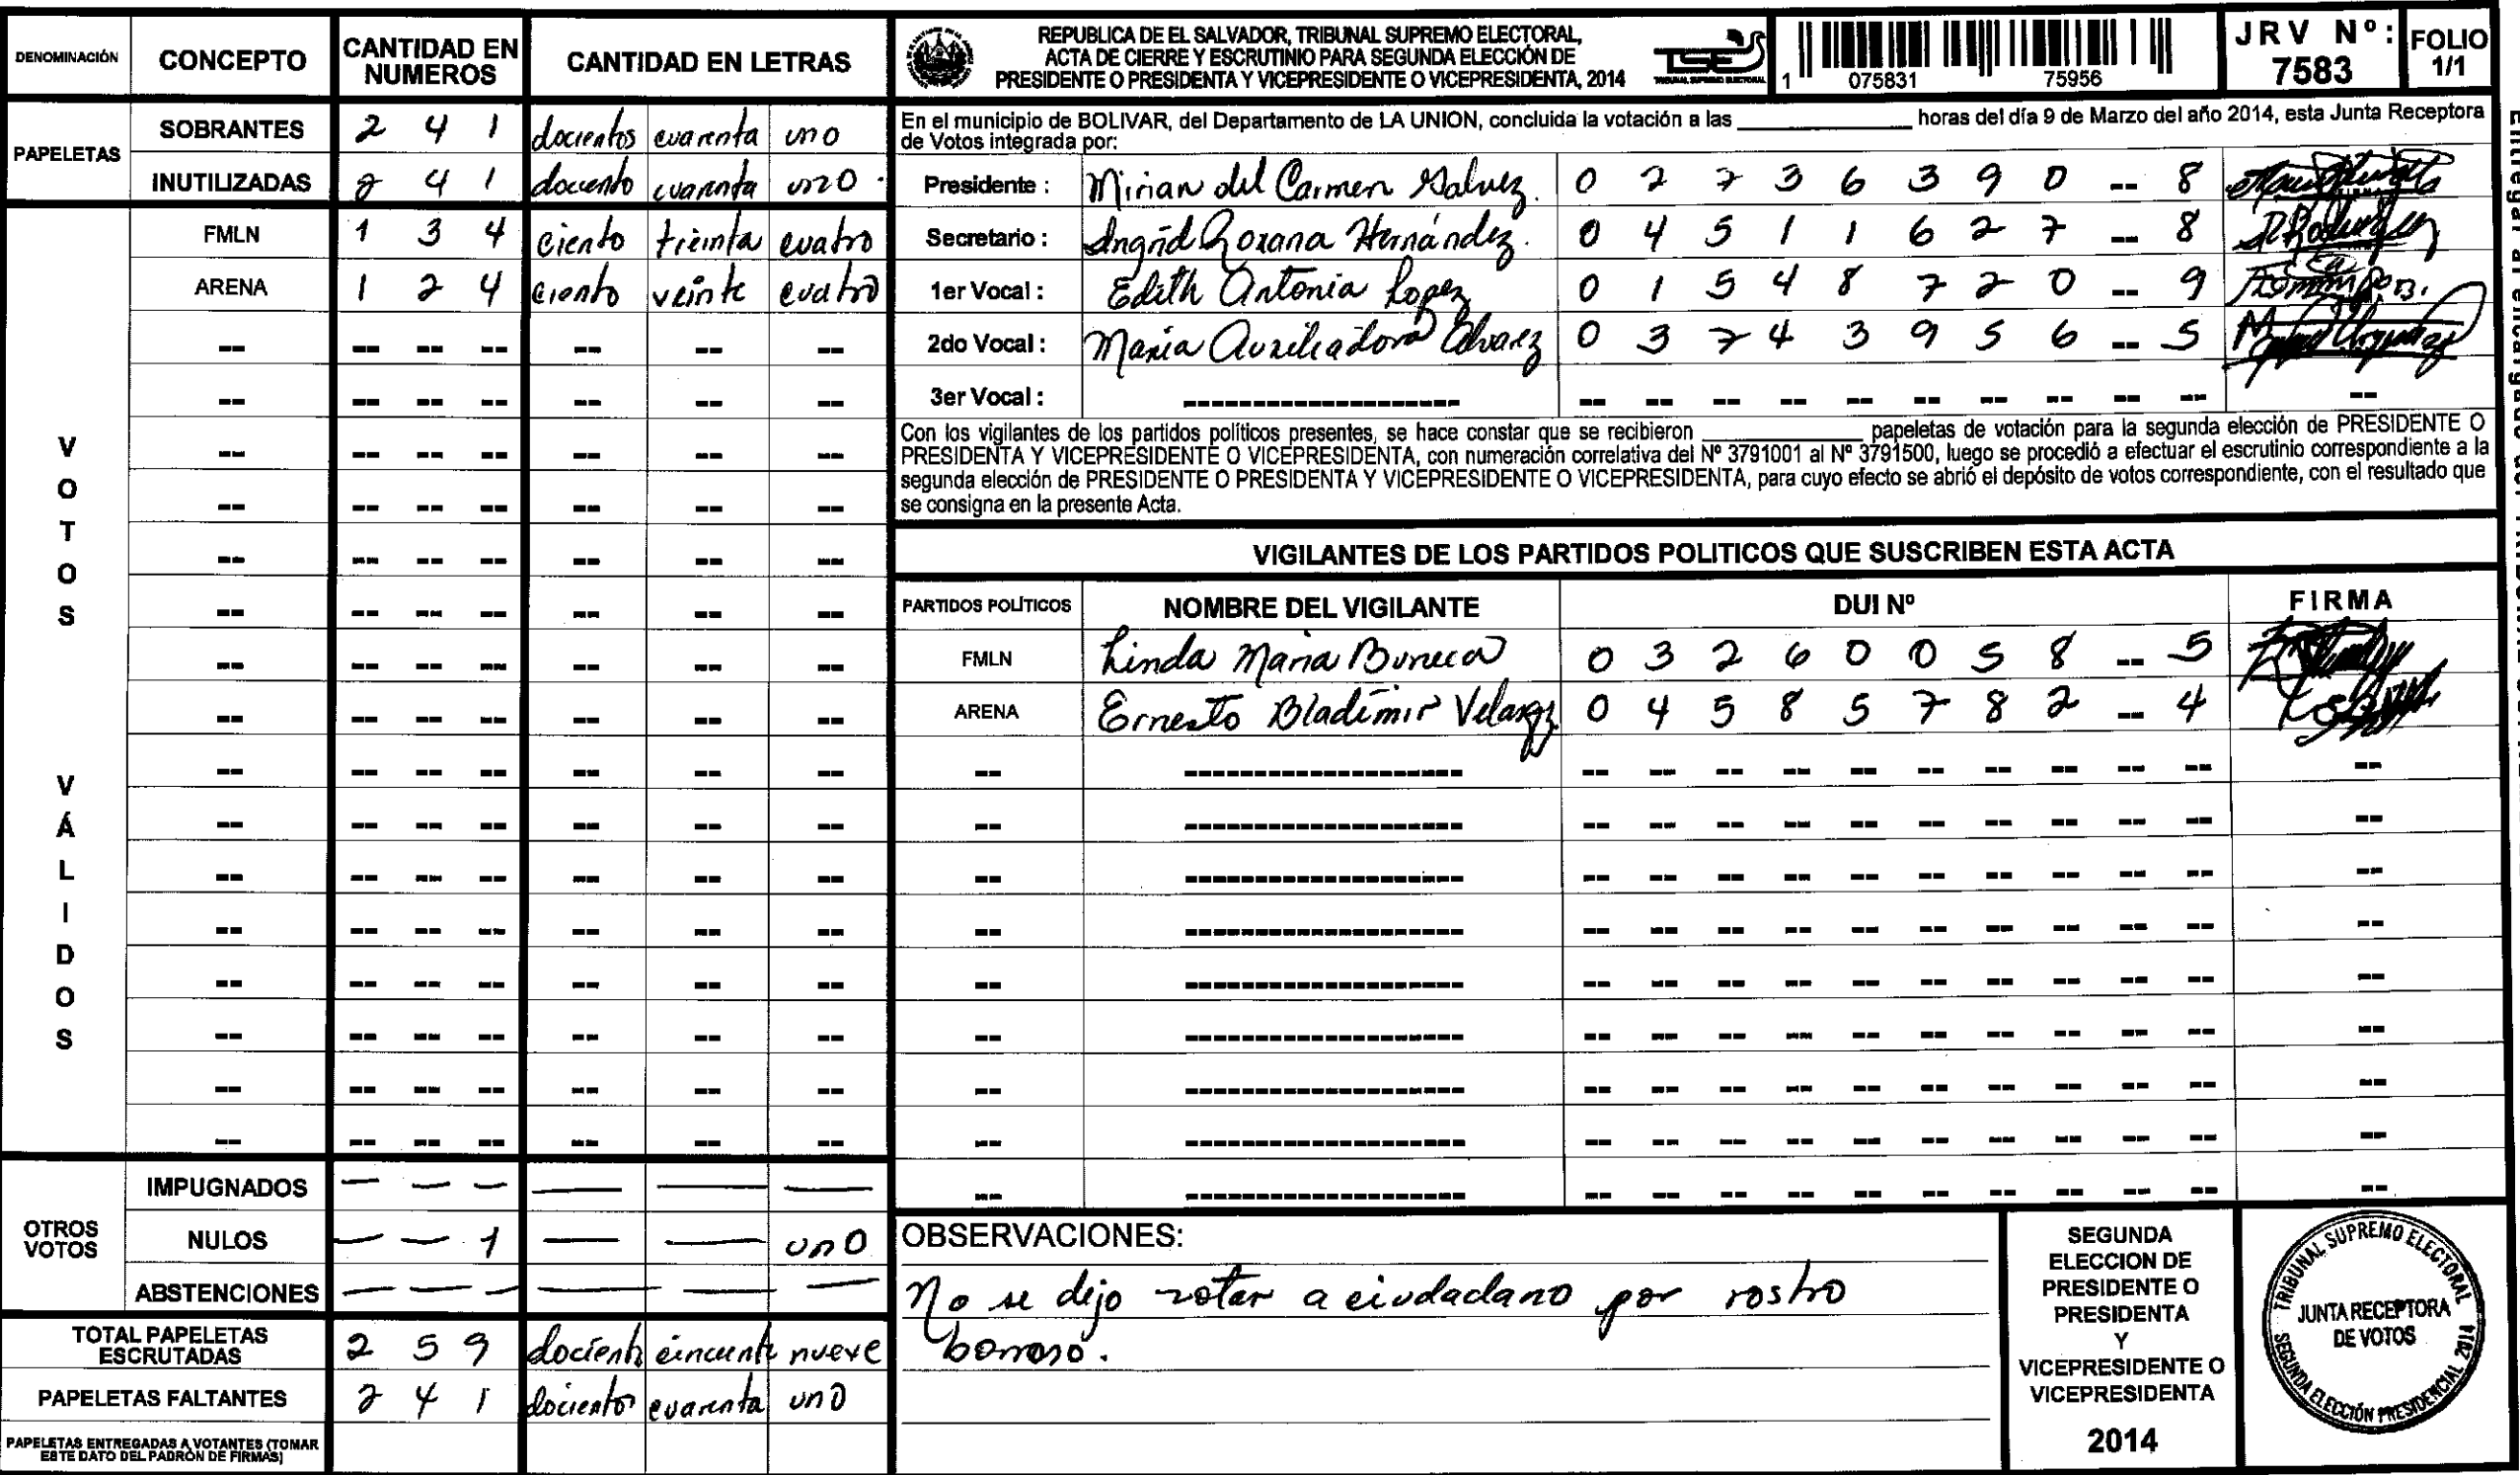 DENOMINACIÓN CONCEPTO CANTIDAD EN NUMEROS CANTIDAD EN LETRAS
PAPELETAS
SOBRANTES 2 4 1 docientos cuarenta uno
INUTILIZADAS 2 4 1 dociento cuarenta uno
VOTOS VÁLIDOS
FMLN 1 3 4 ciento treinta cuatro
ARENA 1 2 4 ciento veinte cuatro
OTROS VOTOS
IMPUGNADOS — — — — — —
NULOS — — 1 — — uno
ABSTENCIONES — — — — — —
TOTAL PAPELETAS ESCRUTADAS 2 5 9 nueve
PAPELETAS FALTANTES 2 4 1 docientos cuarenta uno
PAPELETAS ENTREGADAS A VOTANTES (TOMAR
ESTE DATO DEL PADRÓN DE FIRMAS)
REPUBLICA DE EL SALVADOR, TRIBUNAL SUPREMO ELECTORAL,
ACTA DE CIERRE Y ESCRUTINIO PARA SEGUNDA ELECCIÓN DE
PRESIDENTE O PRESIDENTA Y VICEPRESIDENTE O VICEPRESIDENTA, 2014
TSE
TRIBUNAL SUPREMO ELECTORAL
1 075831 75956
JRV Nº: 7583
FOLIO 1/1
En el municipio de BOLIVAR, del Departamento de LA UNION, concluida la votación a las ____________ horas del día 9 de Marzo del año 2014, esta Junta Receptora
de Votos integrada por:
Presidente : Mirian del Carmen Galvez. 0 2 7 3 6 3 9 0 -- 8
Secretario : Ingrid Roxana Hernández. 0 4 5 1 1 6 2 7 -- 8
1er Vocal : Edith Antonia Lopez 0 1 5 4 8 7 2 0 -- 9
2do Vocal : Maria Auxiliadora 0 3 7 4 3 9 5 6 -- 5
3er Vocal : -------------------- -- -- -- -- -- -- -- -- -- -- --
Con los vigilantes de los partidos políticos presentes, se hace constar que se recibieron ____________ papeletas de votación para la segunda elección de PRESIDENTE O
PRESIDENTA Y VICEPRESIDENTE O VICEPRESIDENTA, con numeración correlativa del Nº 3791001 al Nº 3791500, luego se procedió a efectuar el escrutinio correspondiente a la
segunda elección de PRESIDENTE O PRESIDENTA Y VICEPRESIDENTE O VICEPRESIDENTA, para cuyo efecto se abrió el depósito de votos correspondiente, con el resultado que
se consigna en la presente Acta.
VIGILANTES DE LOS PARTIDOS POLITICOS QUE SUSCRIBEN ESTA ACTA
PARTIDOS POLÍTICOS NOMBRE DEL VIGILANTE DUI Nº FIRMA
FMLN Linda Maria 0 3 2 6 0 0 5 8 -- 5
ARENA Ernesto Bladimir 0 4 5 8 5 7 8 2 -- 4
OBSERVACIONES:
No se dejo votar a ciudadano por rostro
borroso.
SEGUNDA
ELECCION DE
PRESIDENTE O
PRESIDENTA
Y
VICEPRESIDENTE O
VICEPRESIDENTA
2014
TRIBUNAL SUPREMO ELECTORAL
JUNTA RECEPTORA
DE VOTOS
SEGUNDA ELECCIÓN PRESIDENCIAL 2014